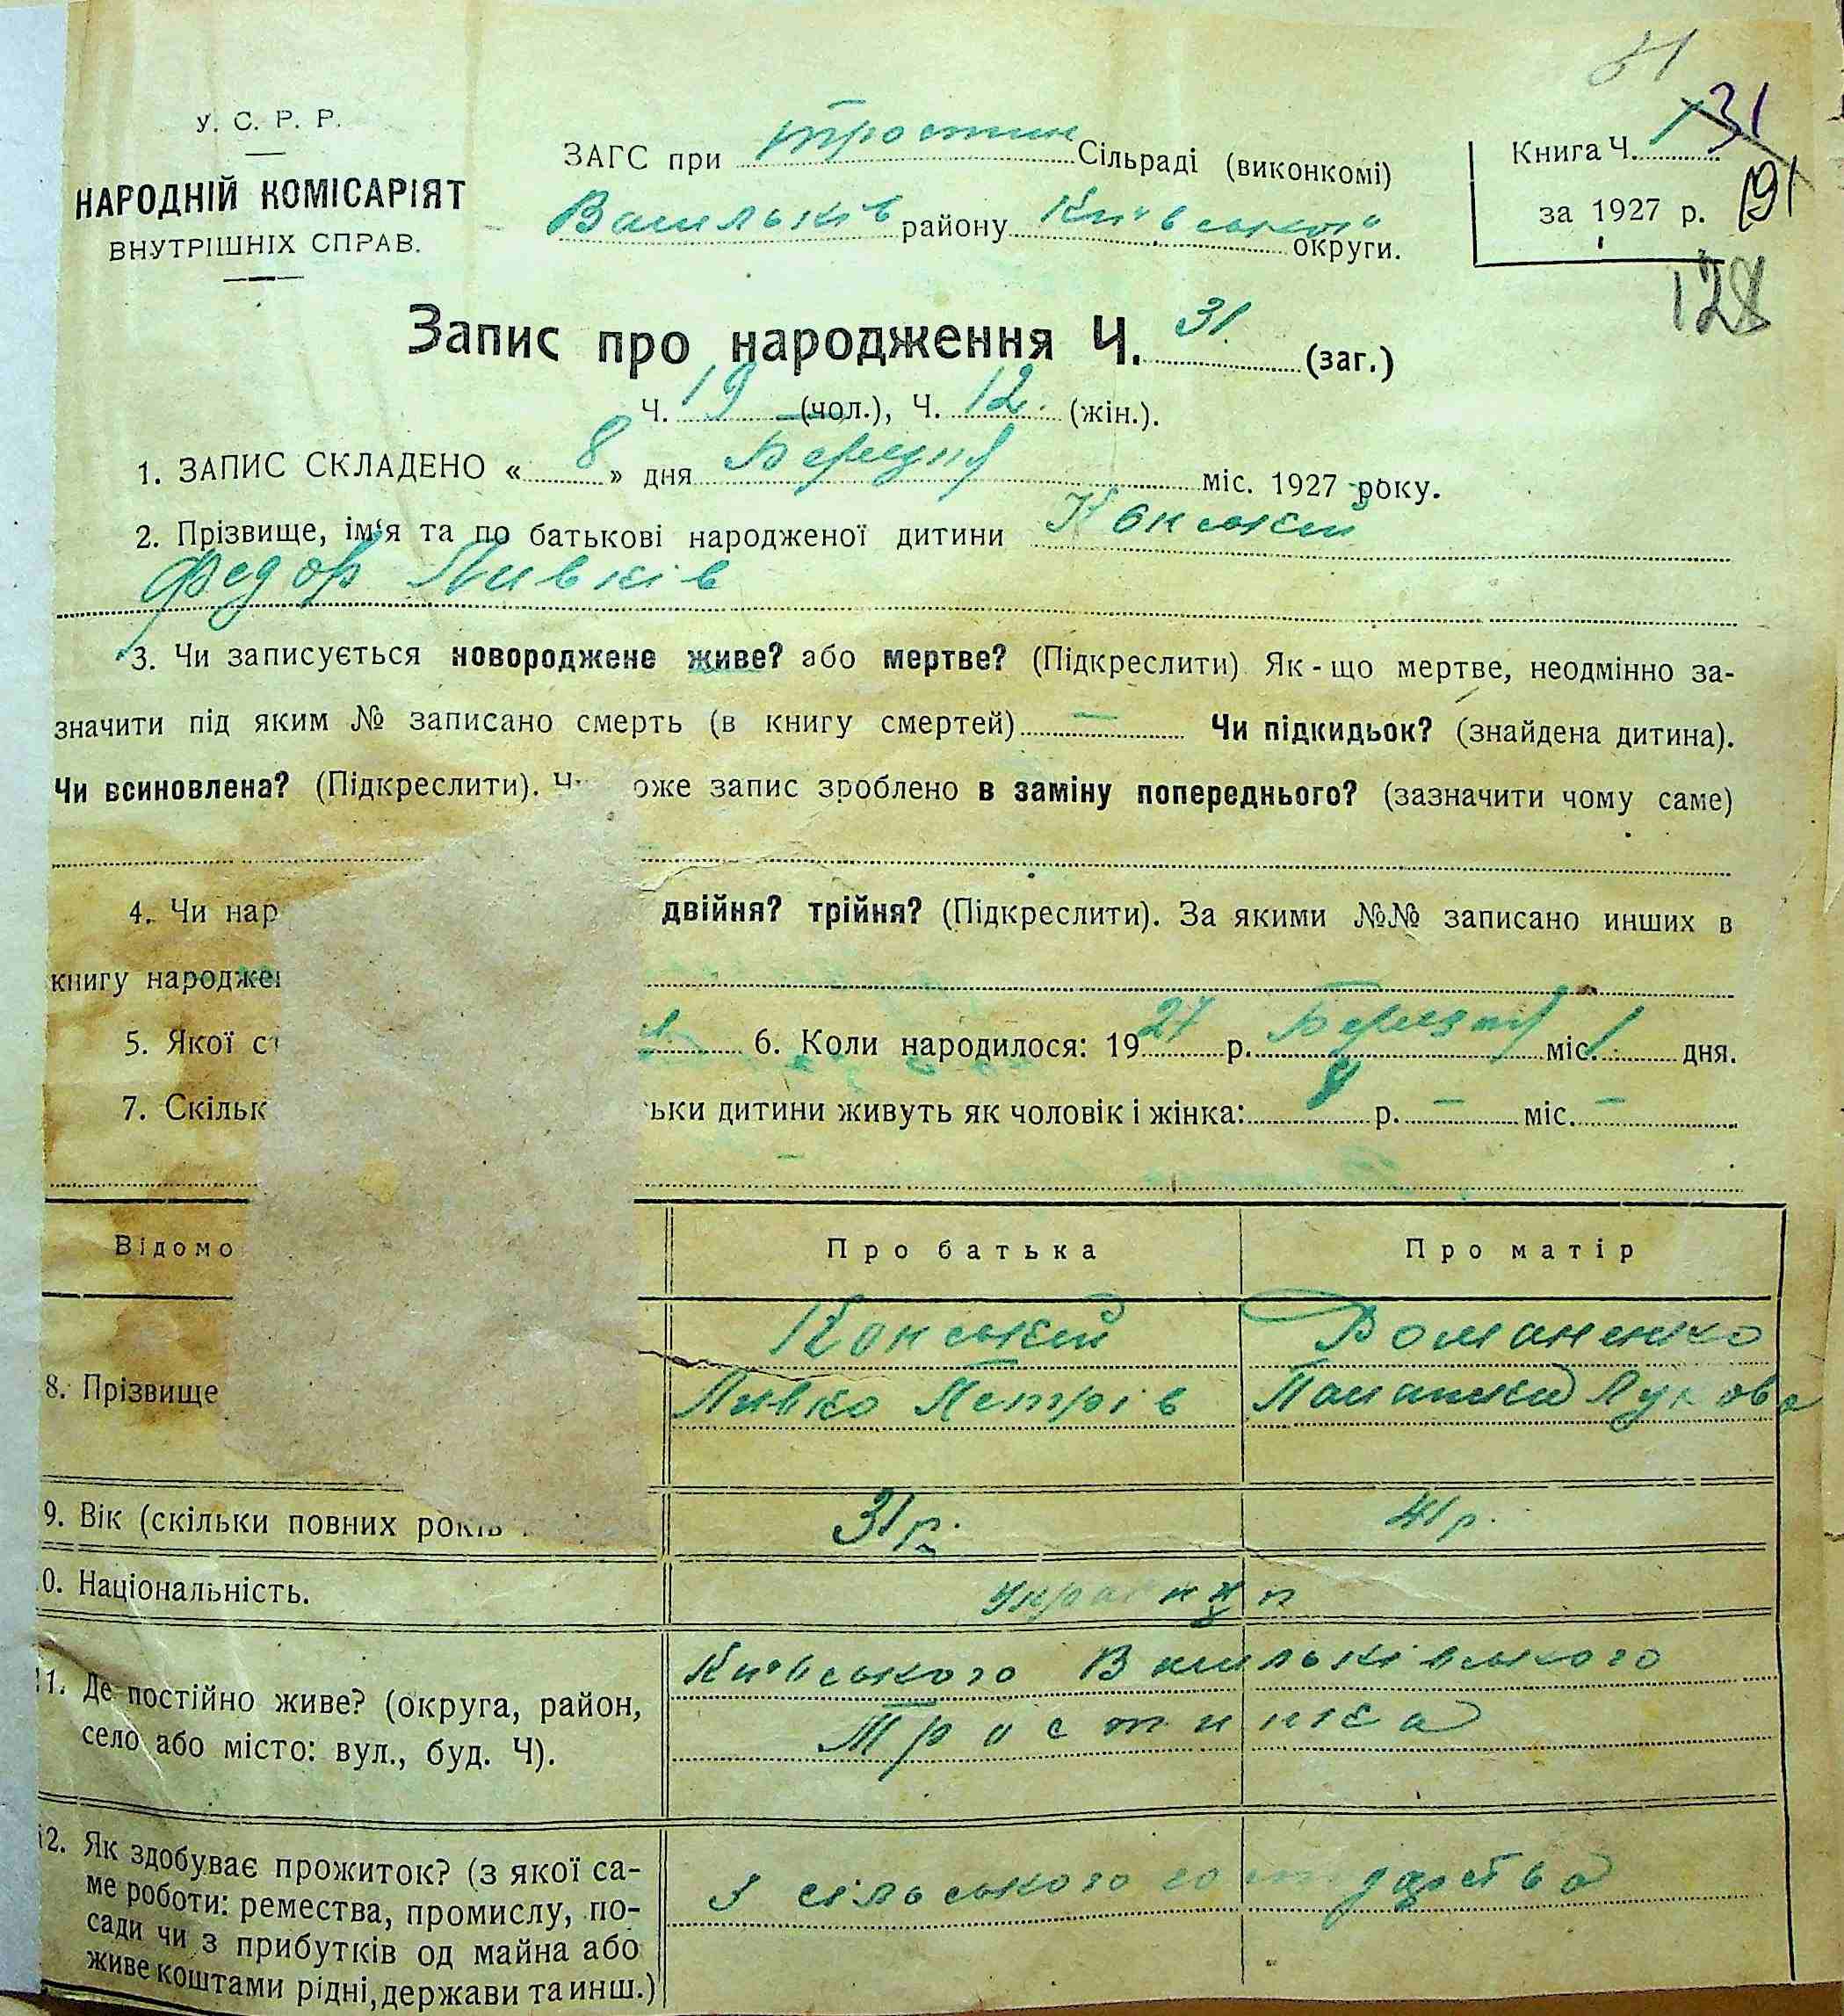 31
У. С. Р. Р.
НАРОДНІЙ КОМІСАРІЯТ
ВНУТРІШНІХ СПРАВ.
ЗАГС при Тростин Сільраді (виконкомі)
Васильків району Київської округи.
Книга Ч. 1
за 1927 р.
128
Запис про народження Ч. 31. (заг.)
Ч. 19 (чол.), Ч. 12. (жін.).
1. ЗАПИС СКЛАДЕНО « 8 » дня Березня міс. 1927 року.
2. Прізвище, ім'я та по батькові народженої дитини Конський
Федор Левків
3. Чи записується новороджене живе? або мертве? (Підкреслити) Як-що мертве, неодмінно за-
значити під яким № записано смерть (в книгу смертей) — Чи підкидьок? (знайдена дитина).
Чи всиновлена? (Підкреслити). оже запис зроблено в заміну попереднього? (зазначити чому саме)
4. Чи нар двійня? трійня? (Підкреслити). За якими №№ записано инших в
книгу народже —
5. Якої 6. Коли народилося: 1927 р. Березня міс. 1 дня.
7. Скільк ьки дитини живуть як чоловік і жінка: 8 р. — міс. —
Відомо Про батька Про матір
Конський Романенко
8. Прізвище Левко Петрів Палажка Лукова
9. Вік (скільки повних років 31 р. 41 р.
0. Національність. українці
11. Де постійно живе? (округа, район,
село або місто: вул., буд. Ч).
Київського Васильківського
Тростинка
12. Як здобуває прожиток? (з якої са-
ме роботи: ремества, промислу, по-
сади чи з прибутків од майна або
живе коштами рідні, держави та инш.)
З сільського господарства